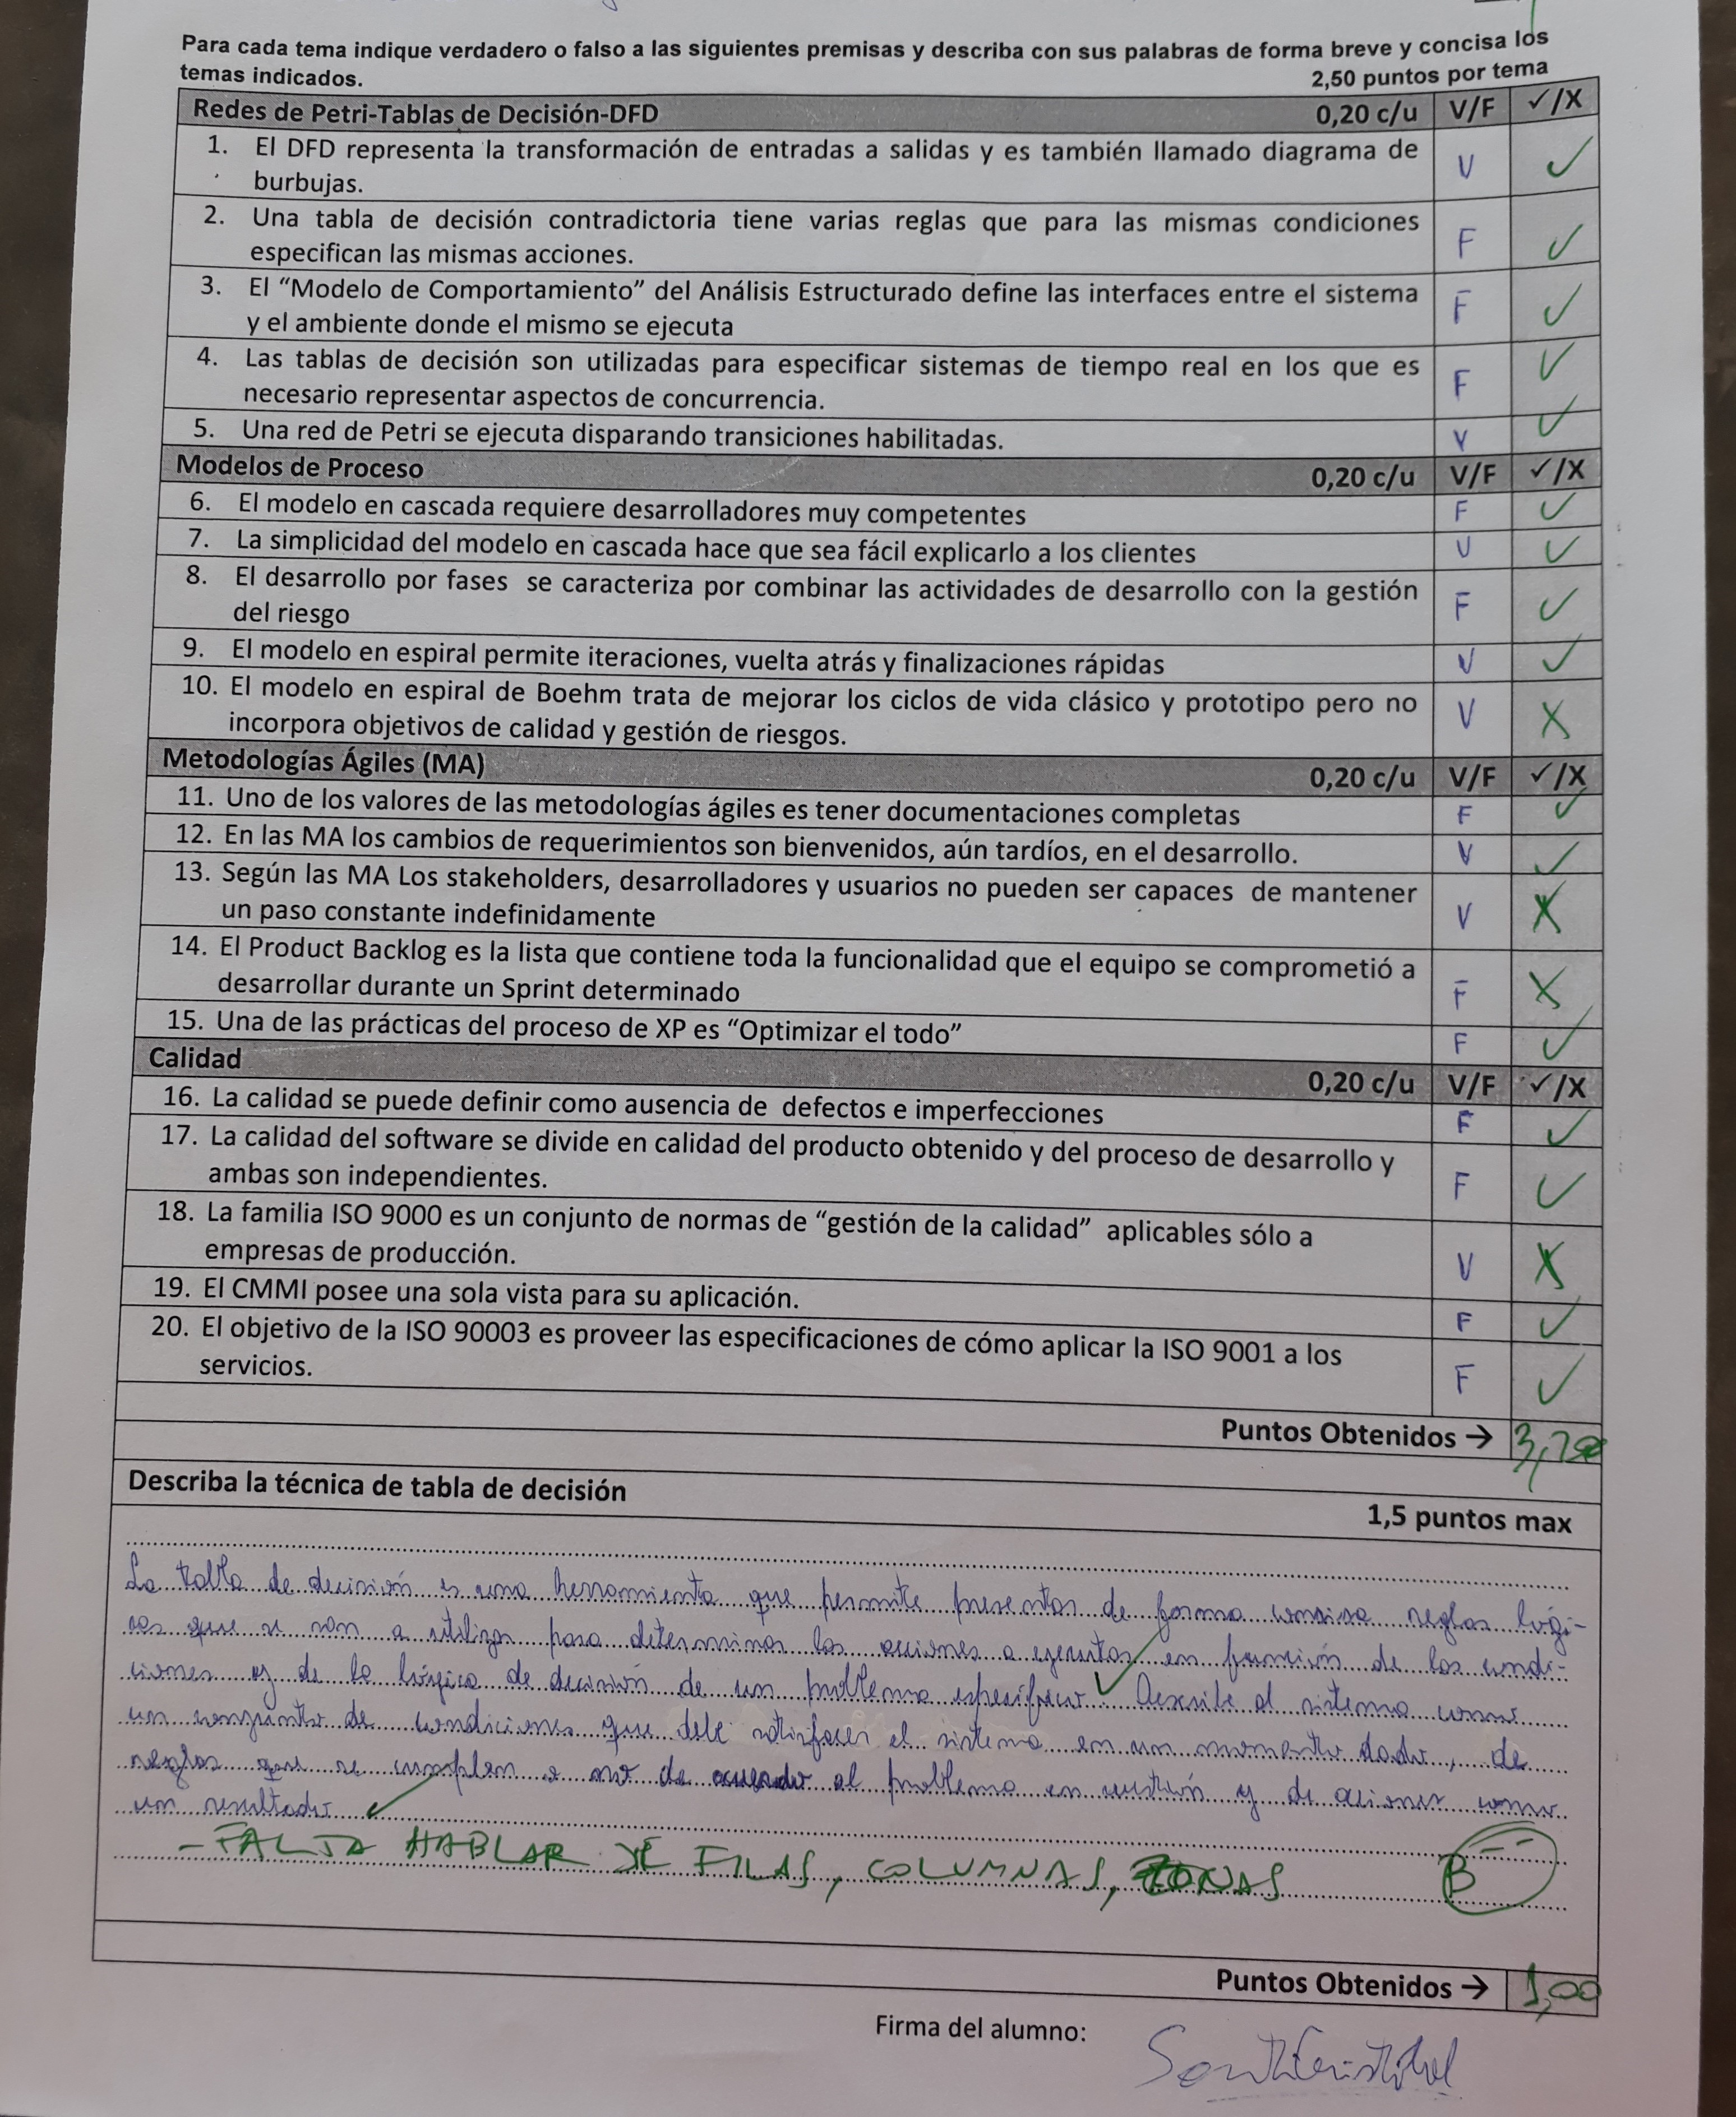 Para cada tema indique verdadero o falso a las siguientes premisas y describa con sus palabras de forma breve y concisa los
temas indicados. 2,50 puntos por tema
Redes de Petri-Tablas de Decisión-DFD 0,20 c/u V/F ✓/X
1. El DFD representa la transformación de entradas a salidas y es también llamado diagrama de V ✓
burbujas.
2. Una tabla de decisión contradictoria tiene varias reglas que para las mismas condiciones F ✓
especifican las mismas acciones.
3. El “Modelo de Comportamiento” del Análisis Estructurado define las interfaces entre el sistema F ✓
y el ambiente donde el mismo se ejecuta
4. Las tablas de decisión son utilizadas para especificar sistemas de tiempo real en los que es F ✓
necesario representar aspectos de concurrencia.
5. Una red de Petri se ejecuta disparando transiciones habilitadas. V ✓
Modelos de Proceso 0,20 c/u V/F ✓/X
6. El modelo en cascada requiere desarrolladores muy competentes F ✓
7. La simplicidad del modelo en cascada hace que sea fácil explicarlo a los clientes V ✓
8. El desarrollo por fases se caracteriza por combinar las actividades de desarrollo con la gestión F ✓
del riesgo
9. El modelo en espiral permite iteraciones, vuelta atrás y finalizaciones rápidas V ✓
10. El modelo en espiral de Boehm trata de mejorar los ciclos de vida clásico y prototipo pero no V X
incorpora objetivos de calidad y gestión de riesgos.
Metodologías Ágiles (MA) 0,20 c/u V/F ✓/X
11. Uno de los valores de las metodologías ágiles es tener documentaciones completas F ✓
12. En las MA los cambios de requerimientos son bienvenidos, aún tardíos, en el desarrollo. V ✓
13. Según las MA Los stakeholders, desarrolladores y usuarios no pueden ser capaces de mantener V X
un paso constante indefinidamente
14. El Product Backlog es la lista que contiene toda la funcionalidad que el equipo se comprometió a F X
desarrollar durante un Sprint determinado
15. Una de las prácticas del proceso de XP es “Optimizar el todo” F ✓
Calidad 0,20 c/u V/F ✓/X
16. La calidad se puede definir como ausencia de defectos e imperfecciones F ✓
17. La calidad del software se divide en calidad del producto obtenido y del proceso de desarrollo y F ✓
ambas son independientes.
18. La familia ISO 9000 es un conjunto de normas de “gestión de la calidad” aplicables sólo a V X
empresas de producción.
19. El CMMI posee una sola vista para su aplicación. F ✓
20. El objetivo de la ISO 90003 es proveer las especificaciones de cómo aplicar la ISO 9001 a los F ✓
servicios.
Puntos Obtenidos →
Describa la técnica de tabla de decisión 1,5 puntos max
La tabla de decisión es una herramienta que permite presentar de forma concisa reglas lógi-
cas que se van a utilizar para determinar las acciones a ejecutar en función de las condi-
ciones y de la lógica de decisión de un problema específico. ✓ Describe al sistema como
un conjunto de condiciones que debe satisfacer el sistema en un momento dado, de
reglas que se cumplen o no de acuerdo al problema en cuestión y de acciones como
un resultado ✓
- FALTA HABLAR DE FILAS, COLUMNAS, ZONAS B-
Puntos Obtenidos → 1,00
Firma del alumno: